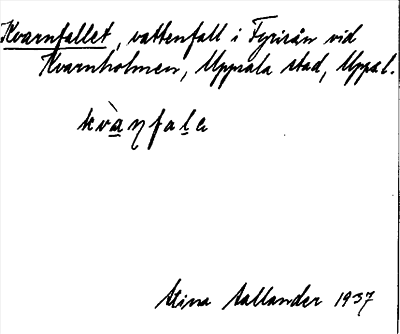 Kvarnfallet, vattenfall i Fyrisån vid
Kvarnholmen, Uppsala stad, Uppl.
kvànfalə
Stina Sallander 1937